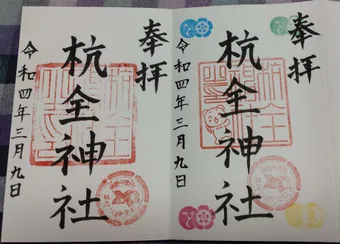 奉拝
杭全神社
令和四年三月九日
奉拝
杭全神社
令和四年三月九日